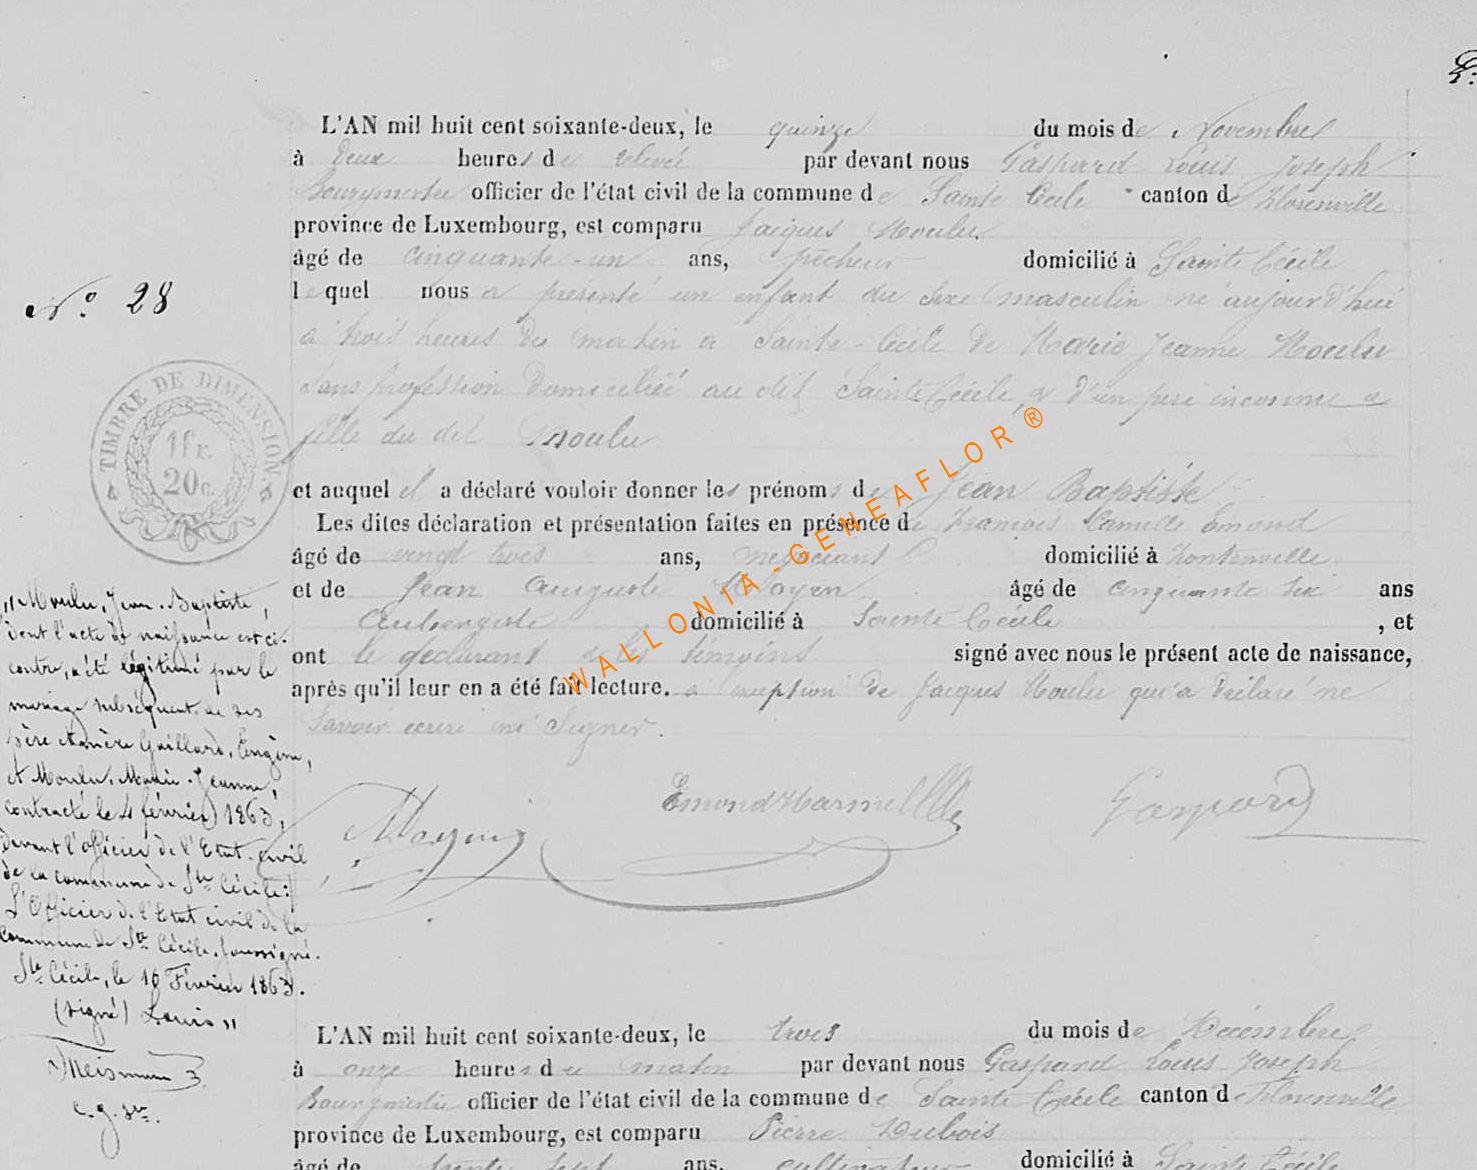 L'AN mil huit cent soixante-deux, le quinze du mois de Novembre
à deux heures de relevée par devant nous Gaspard Louis Joseph
Bourgmestre officier de l'état civil de la commune de Sainte Cécile canton de Florenville
province de Luxembourg, est comparu Jacques Moulu
âgé de cinquante-un ans, pêcheur domicilié à Sainte Cécile
lequel nous a présenté un enfant du sexe masculin né aujourd'hui
N° 28
à trois heures du matin à Sainte-Cécile de Marie Jeanne Moulu
sans profession domiciliée au dit Sainte Cécile, & d'un père inconnu
fille du dit Moulu
TIMBRE DE DIMENSION
1 fr.
20 c.
et auquel il a déclaré vouloir donner les prénoms de Jean Baptiste
Les dites déclaration et présentation faites en présence de François Camille Emond
âgé de vingt trois ans, négociant domicilié à
et de Jean Auguste Moyen âgé de cinquante six ans
Aubergiste domicilié à Sainte Cécile , et
ont le déclarant & les témoins signé avec nous le présent acte de naissance,
après qu'il leur en a été fait lecture. à l'exception de Jacques Moulu qui a déclaré ne
savoir écrire ni signer.
"Moulu, Jean-Baptiste,
dont l'acte de naissance est ci-
contre, a été légitimé par le
mariage subséquent de ses
père & mère Gaillard, Eugène,
et Moulu, Marie-Jeanne,
contracté le 4 février 1863,
devant l'officier de l'Etat-civil
de la commune de Ste Cécile:
L'Officier de l'Etat civil de la
Commune de Ste Cécile, soussigné.
Ste Cécile, le 10 Février 1863.
(signé) Louis"
Moyen
Gaspard
WALLONIA-GENEAFLOR®
L'AN mil huit cent soixante-deux, le trois du mois de Décembre
à onze heures du matin par devant nous Gaspard Louis Joseph
Bourgmestre officier de l'état civil de la commune de Sainte Cécile canton de Florenville
province de Luxembourg, est comparu Pierre Dubois
âgé de trente sept ans, cultivateur domicilié à Sainte Cécile